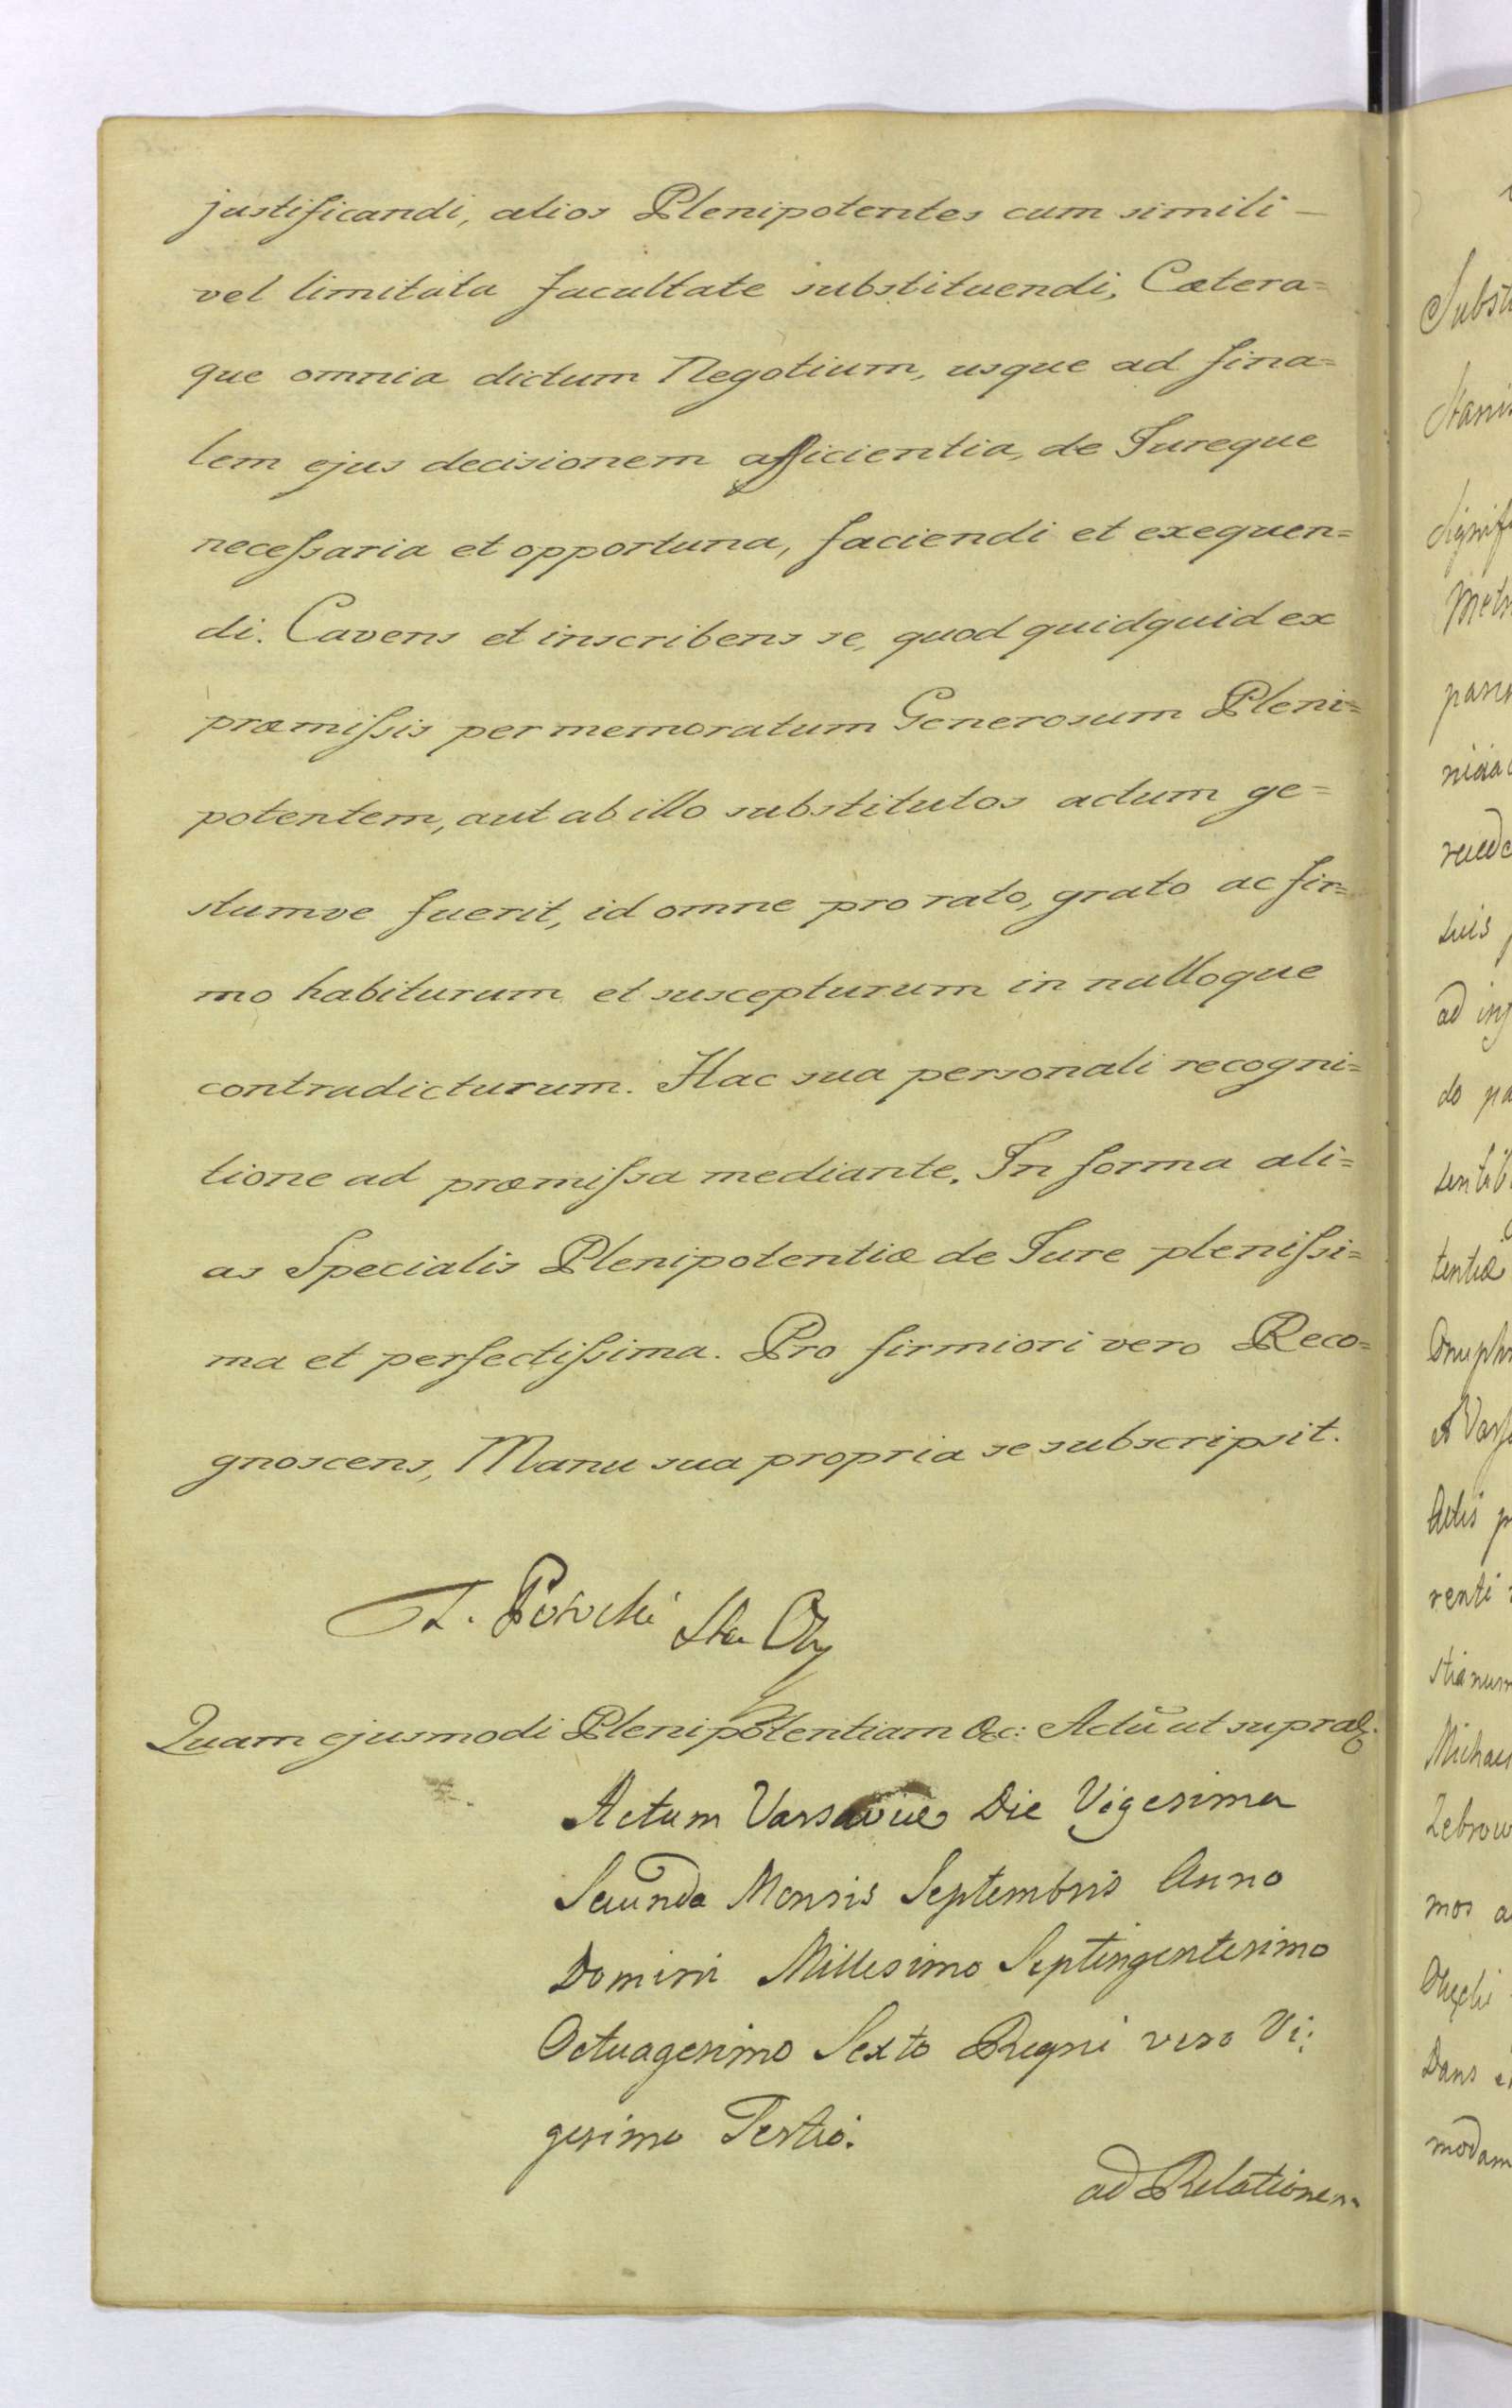 justificandi, alios Plenipotentes cum simili –
vel limitata facultate substituendi, Cætera=
que omnia dictum Negotium, usque ad fina=
lem ejus decisionem afficientia, de Jureque
necessaria et opportuna, faciendi et exequen=
di. Cavens et inscribens se, quod quidquid ex
præmissis per memoratum Generosum Pleni=
potentem, aut ab illo substitutos actum ge=
stumve fuerit, id omne pro rato, grato ac fir=
mo habiturum et suscepturum in nulloque
contradicturum. Hac sua personali recogni=
tione ad præmissa mediante. In forma ali=
as Specialis Plenipotentiæ de Jure plenissi=
ma et perfectissima. Pro firmiori vero Reco=
gnoscens, Manu sua propria se subscripsit.
Quam ejusmodi Plenipotentiam &c: Actū ut supra
Actum Varsaviæ Die Vigesima
Secunda Mensis Septembris Anno
Domini Millesimo Septingentesimo
Octuagesimo Sexto Regni vero Vi:
gesimo Tertio.
ad Relationem